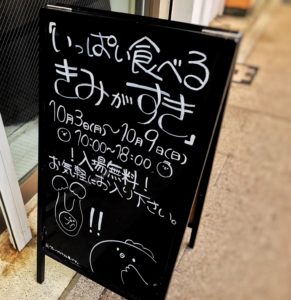 「いっぱい食べる
きみがすき」
10月3日(月)～10月9日(日)
10:00～18:00
！入場無料！
お気軽にお入り下さい。
!!